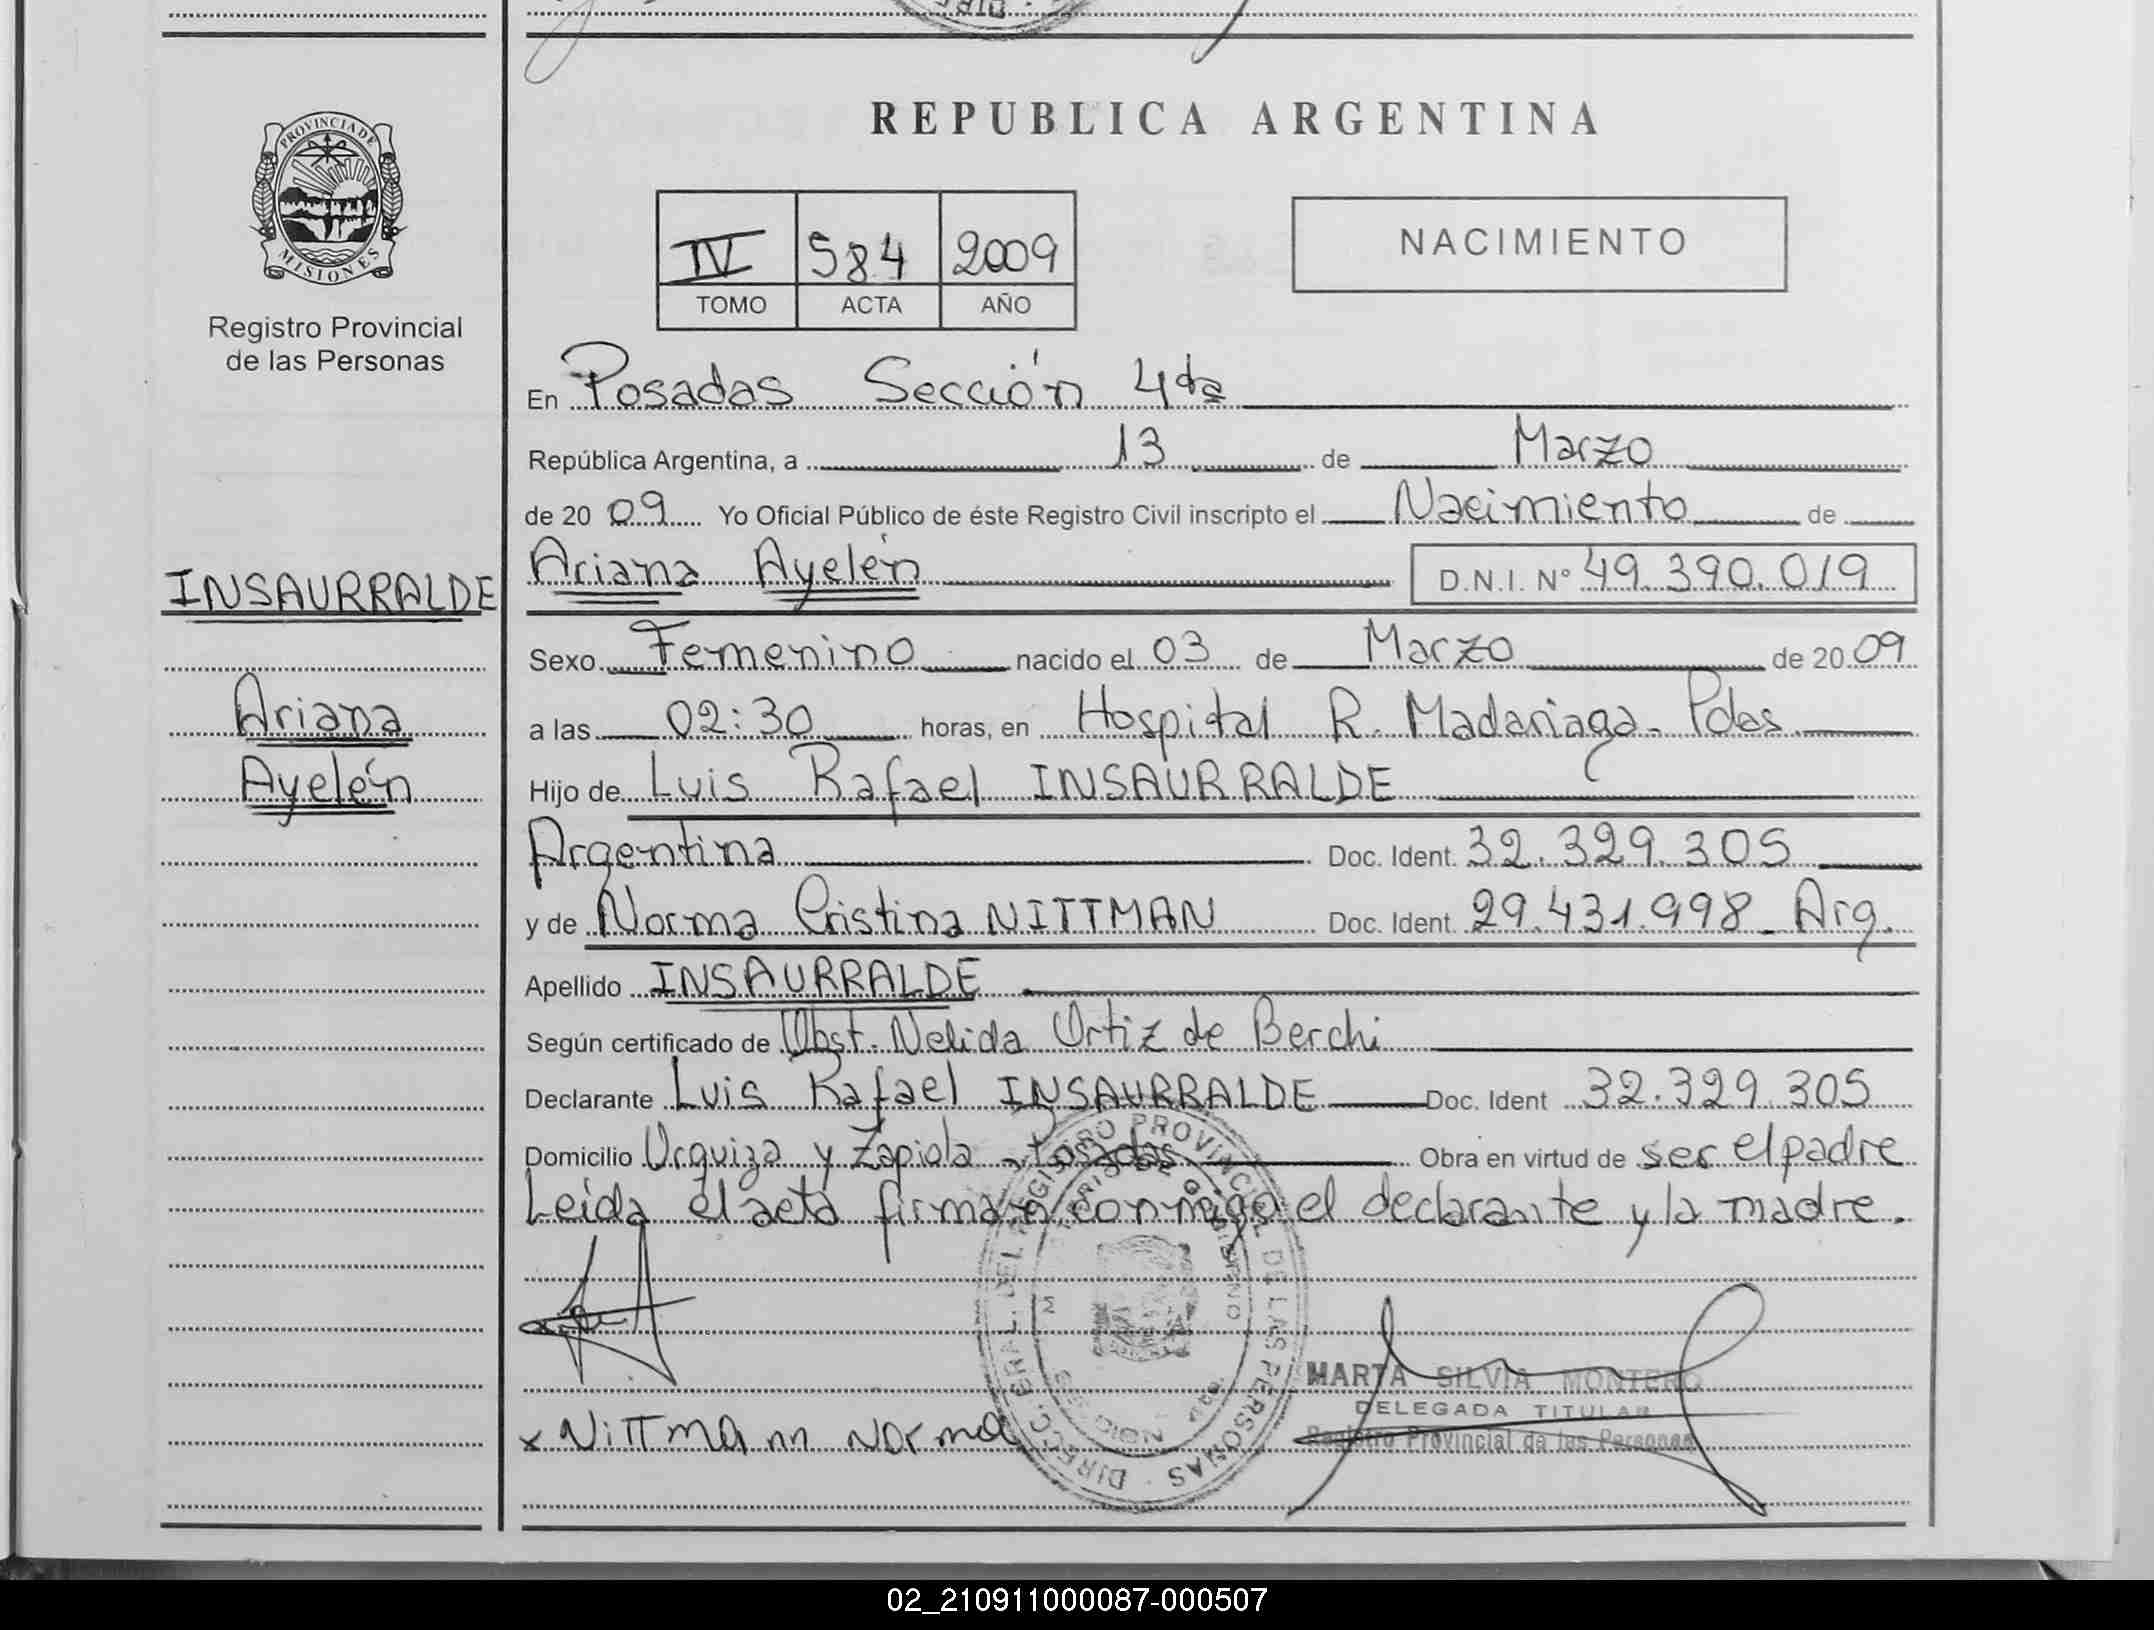 PROVINCIA DE
MISIONES
Registro Provincial
de las Personas
INSAURRALDE
Ariana
Ayelén
REPUBLICA ARGENTINA
IV 584 2009
TOMO ACTA AÑO
NACIMIENTO
En Posadas Sección 4ta
República Argentina, a 13 de Marzo
de 20 09 Yo Oficial Público de éste Registro Civil inscripto el Nacimiento de
Ariana Ayelén D.N.I. N° 49.390.019
Sexo Femenino nacido el 03 de Marzo de 20 09
a las 02:30 horas, en Hospital R. Madariaga - Pdas
Hijo de Luis Rafael INSAURRALDE
Argentina Doc. Ident. 32.329.305
y de Norma Cristina NITTMAN Doc. Ident. 29.431.998 - Arg.
Apellido INSAURRALDE
Según certificado de Obst. Nelida Ortiz de Berchi
Declarante Luis Rafael INSAURRALDE Doc. Ident 32.329.305
Domicilio Urquiza y Zapiola - Posadas Obra en virtud de ser el padre
Leída el acta firman conmigo el declarante y la madre.
DIREC. GRAL. DEL REGISTRO PROVINCIAL DE LAS PERSONAS
MARTA SILVIA MONTERO
DELEGADA TITULAR
Registro Provincial de las Personas
x NiTTMAnn Norma
02_210911000087-000507